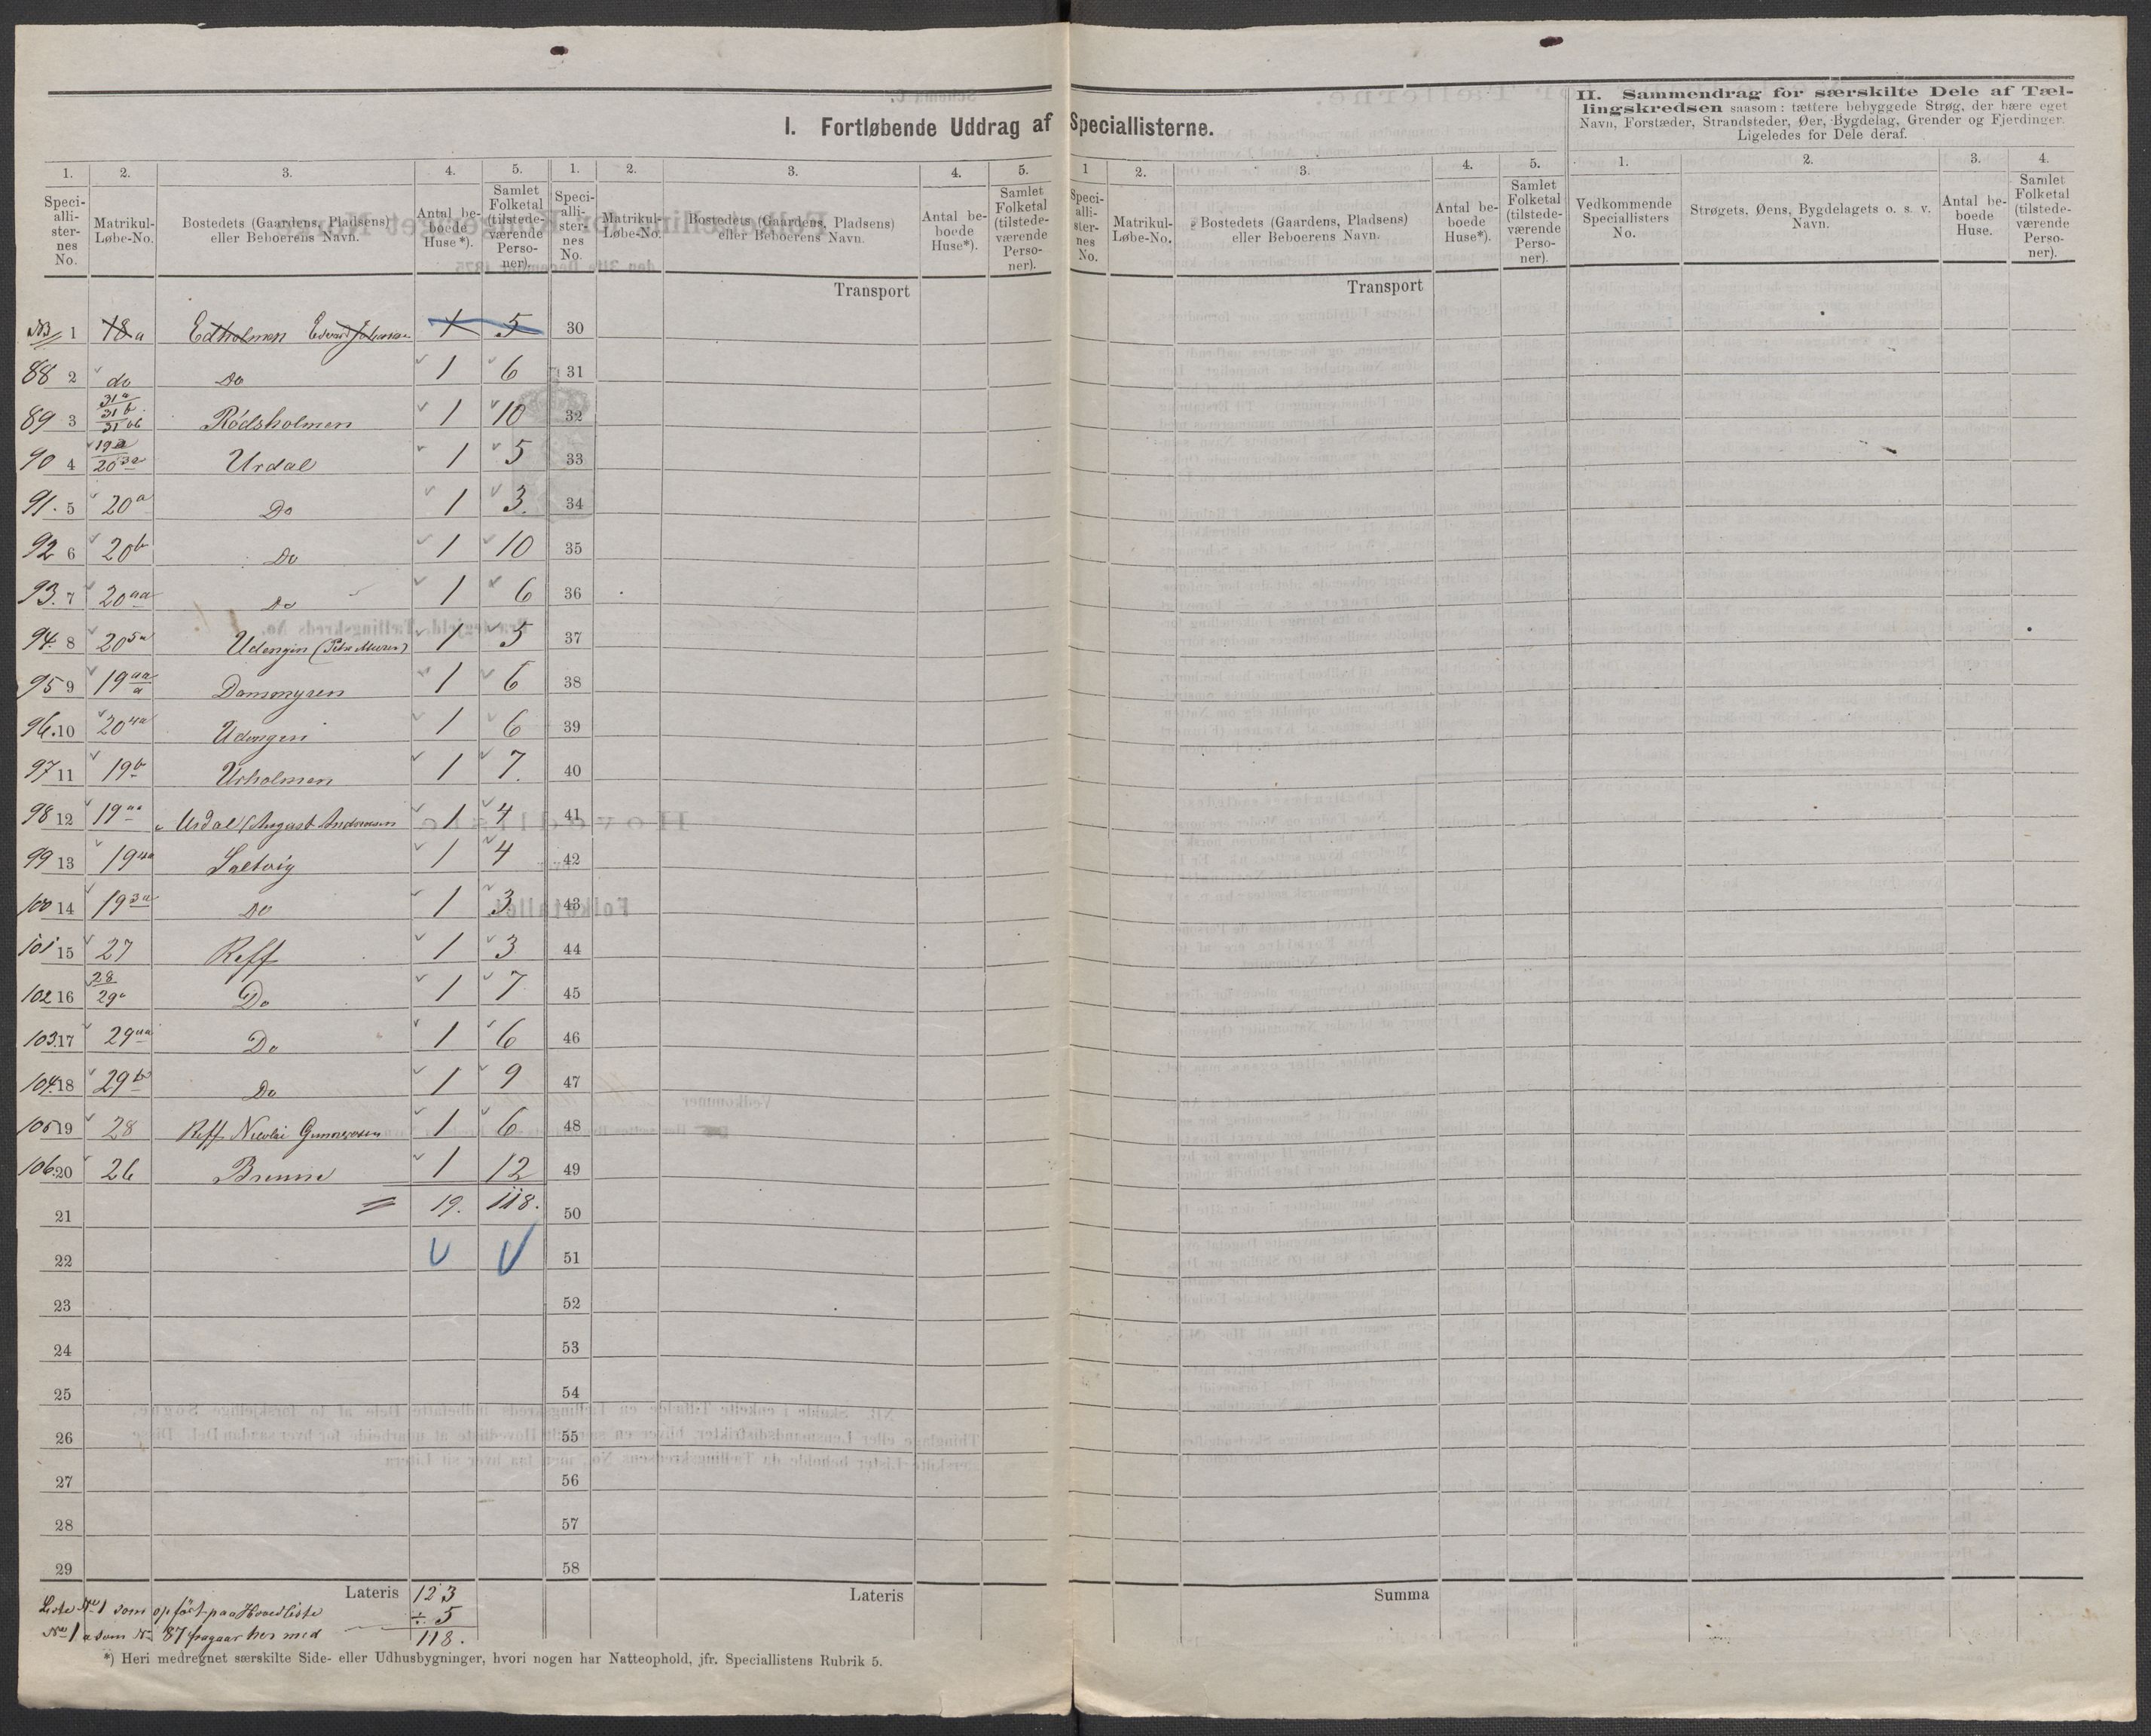 I. Fortløbende Uddrag af Speciallisterne.
II. Sammendrag for særskilte Dele af Tællingskredsen saasom: tættere bebyggede Strøg, der bære eget
Navn, Forstæder, Strandsteder, Øer, Bygdelag, Grender og Fjerdinger.
Ligeledes for Dele deraf.
1. 2. 3. 4. 5. 1. 2. 3. 4. 5. 1 2. 3. 4. 5. 1. 2. 3. 4.
Speciallisternes No. Matrikul-Løbe-No. Bostedets (Gaardens, Pladsens) eller Beboerens Navn. Antal beboede Huse*). Samlet Folketal (tilstedeværende Personer).
Speciallisternes No. Matrikul-Løbe-No. Bostedets (Gaardens, Pladsens) eller Beboerens Navn. Antal beboede Huse*). Samlet Folketal (tilstedeværende Personer).
Speciallisternes No. Matrikul-Løbe-No. Bostedets (Gaardens, Pladsens) eller Beboerens Navn. Antal beboede Huse*). Samlet Folketal (tilstedeværende Personer).
Vedkommende Speciallisters No. Strøgets, Øens, Bygdelagets o. s. v. Navn. Antal beboede Huse. Samlet Folketal (tilstedeværende Personer).
Transport Transport
1 18a Edholmen Edvard Johansen 1 5 30
88 2 do Do 1 6 31
89 3 31a 31b 31bb Rödsholmen 1 10 32
90 4 19a 20 3a Urdal 1 5 33
91. 5 20a Do 1 3. 34
92 6 20b Do 1 10 35
93. 7 20aa Do 1 6 36
94. 8 20 5a Udengen 1 5 37
95 9 19 aa a Dammyren 1 6 38
96. 10 20 4a Udengen 1 6 39
97 11 19b Urholmen 1 7. 40
98 12 19aa Urdal (August Andersen 1 4 41
99 13 19 4a Saltvig 1 4 42
100 14 19 3a Do 1 3 43
101 15 27 Reff 1 3 44
102 16 28 29a Do 1 7 45
103. 17 29aa Do 1 6 46
104. 18 29b Do 1 9 47
105 19 28 Reff Nicolai Gunnersen 1 6 48
106. 20 26 Brenne 1 12 49
21 19. 118. 50
22 51
23 52
24 53
25 54
26 55
27 56
28 57
29 58
Lateris 123 Lateris Summa
Liste No 1 som opfört paa Hovedliste ÷ 5
No 1 a som No 87 fragaar her med 118.
*) Heri medregnet særskilte Side- eller Udhusbygninger, hvori nogen har Natteophold, jfr. Speciallistens Rubrik 5.